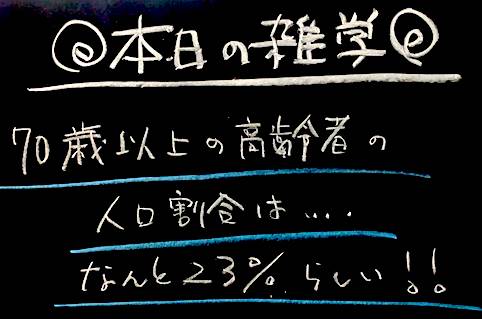 @本日の雑学@
70歳以上の高齢者の
人口割合は....
なんと23%らしい!!